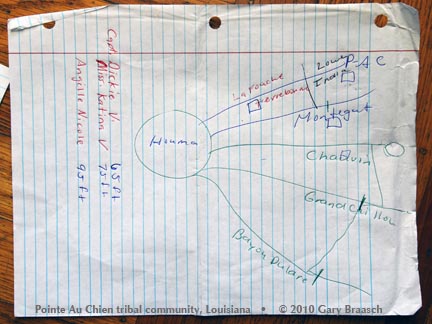 Capt. Dickie V. 65 ft
Miss Katina V 75 ft
Angelle Nicole 95 ft
Houma
Lafouche
Terrebonne
Lower
P-A C
Montegut
Chauvin
Grand Caillou
Bayou Dularc
Pointe Au Chien tribal community, Louisiana • © 2010 Gary Braasch